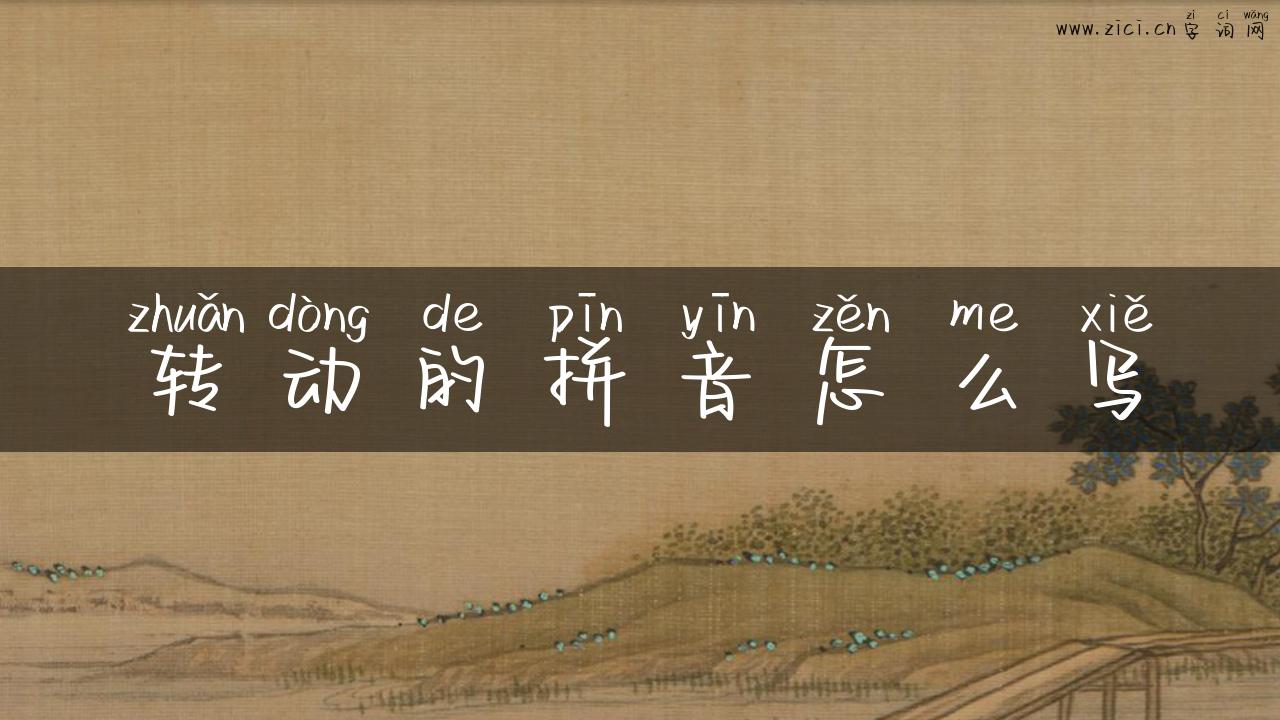 zì cí wǎng
www.zici.cn 字词网
zhuǎn dòng de pīn yīn zěn me xiě
转动的拼音怎么写